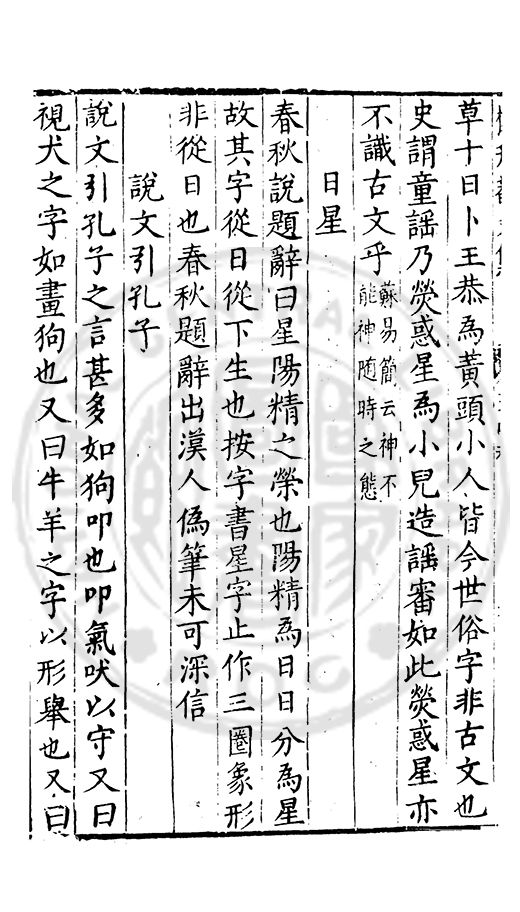 草十日卜王恭為黃頭小人皆今世俗字非古文也
史謂童謡乃熒惑星為小兒造謡審如此熒惑星亦
不識古文乎蘇易簡云神不能神随時之態
日星
春秋說題辭曰星陽精之榮也陽精為日日分為星
故其字從日從下生也按字書星字止作三圈象形
非從日也春秋題辭出漢人偽筆未可深信
說文引孔子
說文引孔子之言甚多如狗叩也叩氣吠以守又曰
視犬之字如畫狗也又曰牛羊之字以形舉也又曰